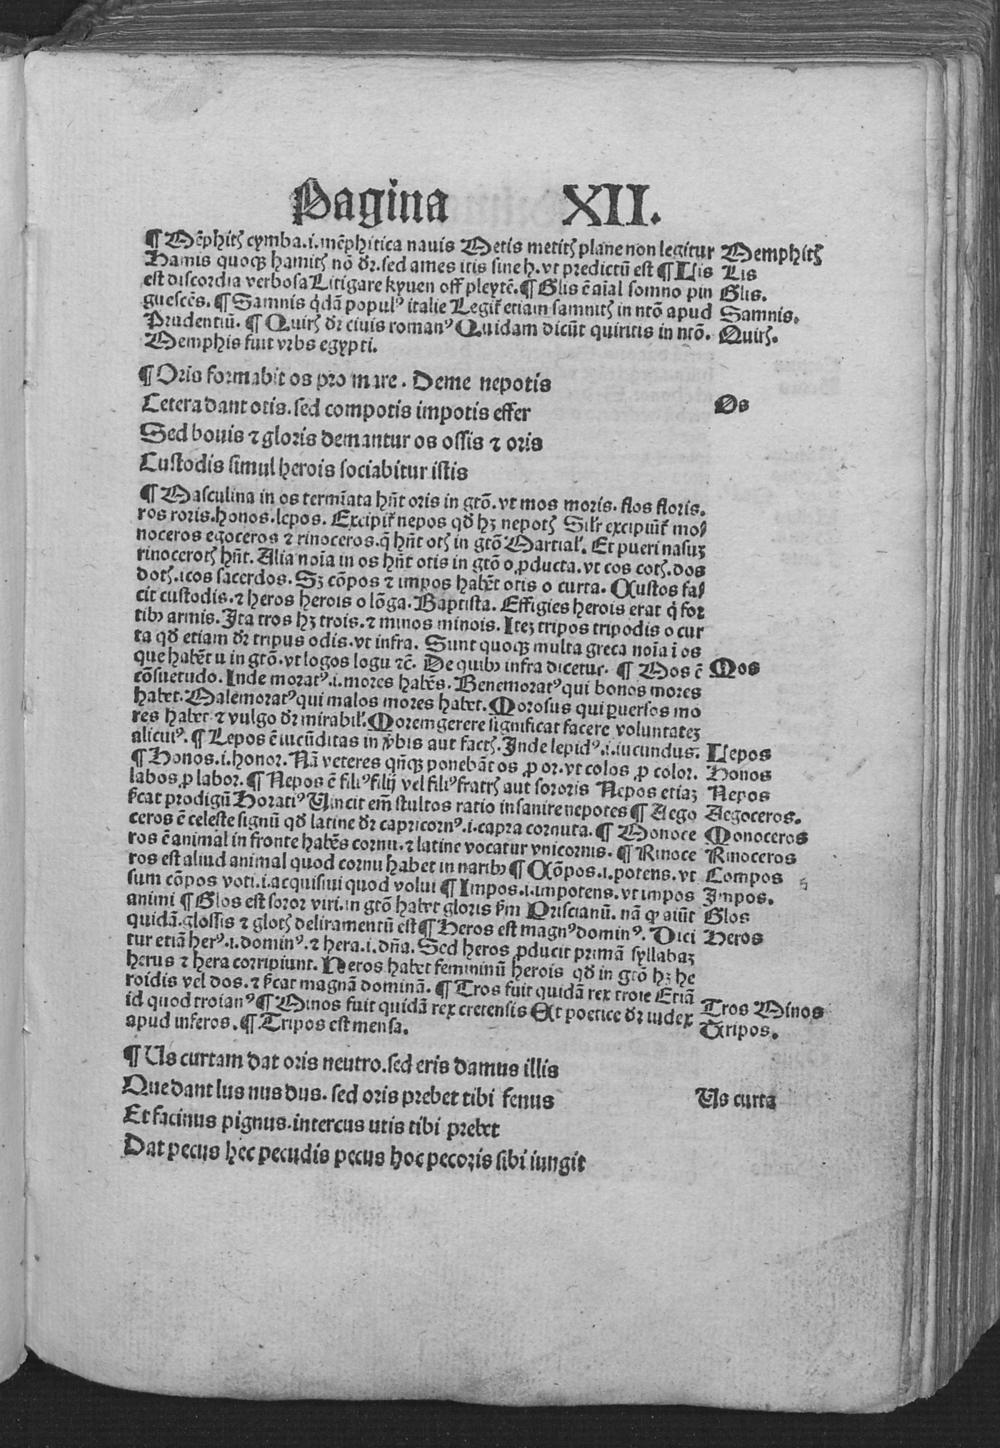 Pagina XII.
¶ Mēphitꝭ cymba.i.mēphitica nauis Metis metitꝭ plane non legitur Memphitꝭ
Hamis quoqꝫ hamitꝭ nō dr̄.sed ames itis sine h.vt predictū est ¶ Llis Lis
est discordia verbosa Litigare kyuen off pleytē.¶ Glis ē aīal somno pin Glis.
guescēs.¶ Samnis q̇dā populꝰ italie Legit᷑ etiam samnitꝭ in ntō apud Samnis.
Prudentiū.¶ Quirꝭ dr̄ ciuis romanꝰ Quidam dicūt quiritis in ntō. Quirꝭ.
Memphis fuit vrbs egypti.
¶ Oris formabit os pro mare. Deme nepotis
Cetera dant otis.sed compotis impotis effer Os
Sed bouis ⁊ gloris demantur os ossis ⁊ oris
Custodis simul herois sociabitur istis
¶ Masculina in os termīata hn̄t oris in gtō.vt mos moris. flos floris.
ros roris.honos.lepos. Excipit᷑ nepos qd̄ hꝫ nepotꝭ Silr̄ excipiūt᷑ mo⸗
noceros egoceros ⁊ rinoceros.q̄ hn̄t otꝭ in gtō Martial᷑. Et pueri nasuꝫ
rinocerotꝭ hn̄t. Alia noīa in os hn̄t otis in gtō o ꝓducta.vt cos cotꝭ.dos
dotꝭ.icos sacerdos. Sꝫ cōpos ⁊ impos habēt otis o curta. Custos fa⸗
cit custodis.⁊ heros herois o lōga. Baptista. Effigies herois erat q̄ for
tibꝰ armis. Ita tros hꝫ trois.⁊ minos minois. Iteꝫ tripos tripodis o cur
ta qd̄ etiam dr̄ tripus odis.vt infra. Sunt quoqꝫ multa greca noīa ī os
que habēt u in gtō.vt logos logu ⁊c̄. De quibꝰ infra dicetur. ¶ Mos ē Mos
cōsuetudo. Inde moratꝰ.i.mores habēs. Benemoratꝰ qui bonos mores
habet. Malemoratꝰ qui malos mores habet. Morosus qui ꝑuersos mo
res habet ⁊ vulgo dr̄ mirabil᷑. Morem gerere significat facere voluntateꝫ
alicuiꝰ.¶ Lepos ē iucūditas in v̄bis aut factꝭ. Inde lepidꝰ.i.iucundus. Llepos
¶ Honos.i.honor. Nā veteres qn̄qꝫ ponebāt os ꝓ or.vt colos ꝓ color. Honos
labos ꝓ labor.¶ Nepos ē filiꝰ filij vel filiꝰ fratrꝭ aut sororis Nepos etiaꝫ Nepos
ſ̄cat prodigū Horatiꝰ Vincit em̄ stultos ratio insanire nepotes ¶ Aego Aegoceros.
ceros ē celeste signū qd̄ latine dr̄ capricornꝰ.i.capra cornuta.¶ Monoce Monoceros
ros ē animal in fronte habēs cornu.⁊ latine vocatur vnicornis.¶ Rinoce Rinoceros
ros est aliud animal quod cornu habet in naribꝰ ¶ Cōpos.i.potens.vt Compos
sum cōpos voti.i.acquisiui quod volui ¶ Impos.i.impotens.vt impos Impos.
animi ¶ Glos est soror viri.in gtō habet gloris ſm Priscianū. nā qꝫ aiūt Glos
quidā.glossis ⁊ glotꝭ deliramentū est ¶ Heros est magnꝰ dominꝰ. Dici Heros
tur etiā herꝰ.i.dominꝰ.⁊ hera.i.dn̄a. Sed heros ꝓducit primā syllabaꝫ
herus ⁊ hera corripiunt. Heros habet femininū herois qd̄ in gtō hꝫ he
roidis vel dos.⁊ ſ̄cat magnā dominā.¶ Tros fuit quidā rex troie Etiā
id quod troianꝰ ¶ Minos fuit quidā rex cretensis Et poetice dr̄ iudex Tros Minos
apud inferos.¶ Tripos est mensa. Tripos.
¶ Us curtam dat oris neutro.sed eris damus illis
Que dant lus nus dus. sed oris prebet tibi fenus Us curta
Et facinus pignus.intercus utis tibi prebet
Dat pecus hec pecudis pecus hoc pecoris sibi iungit